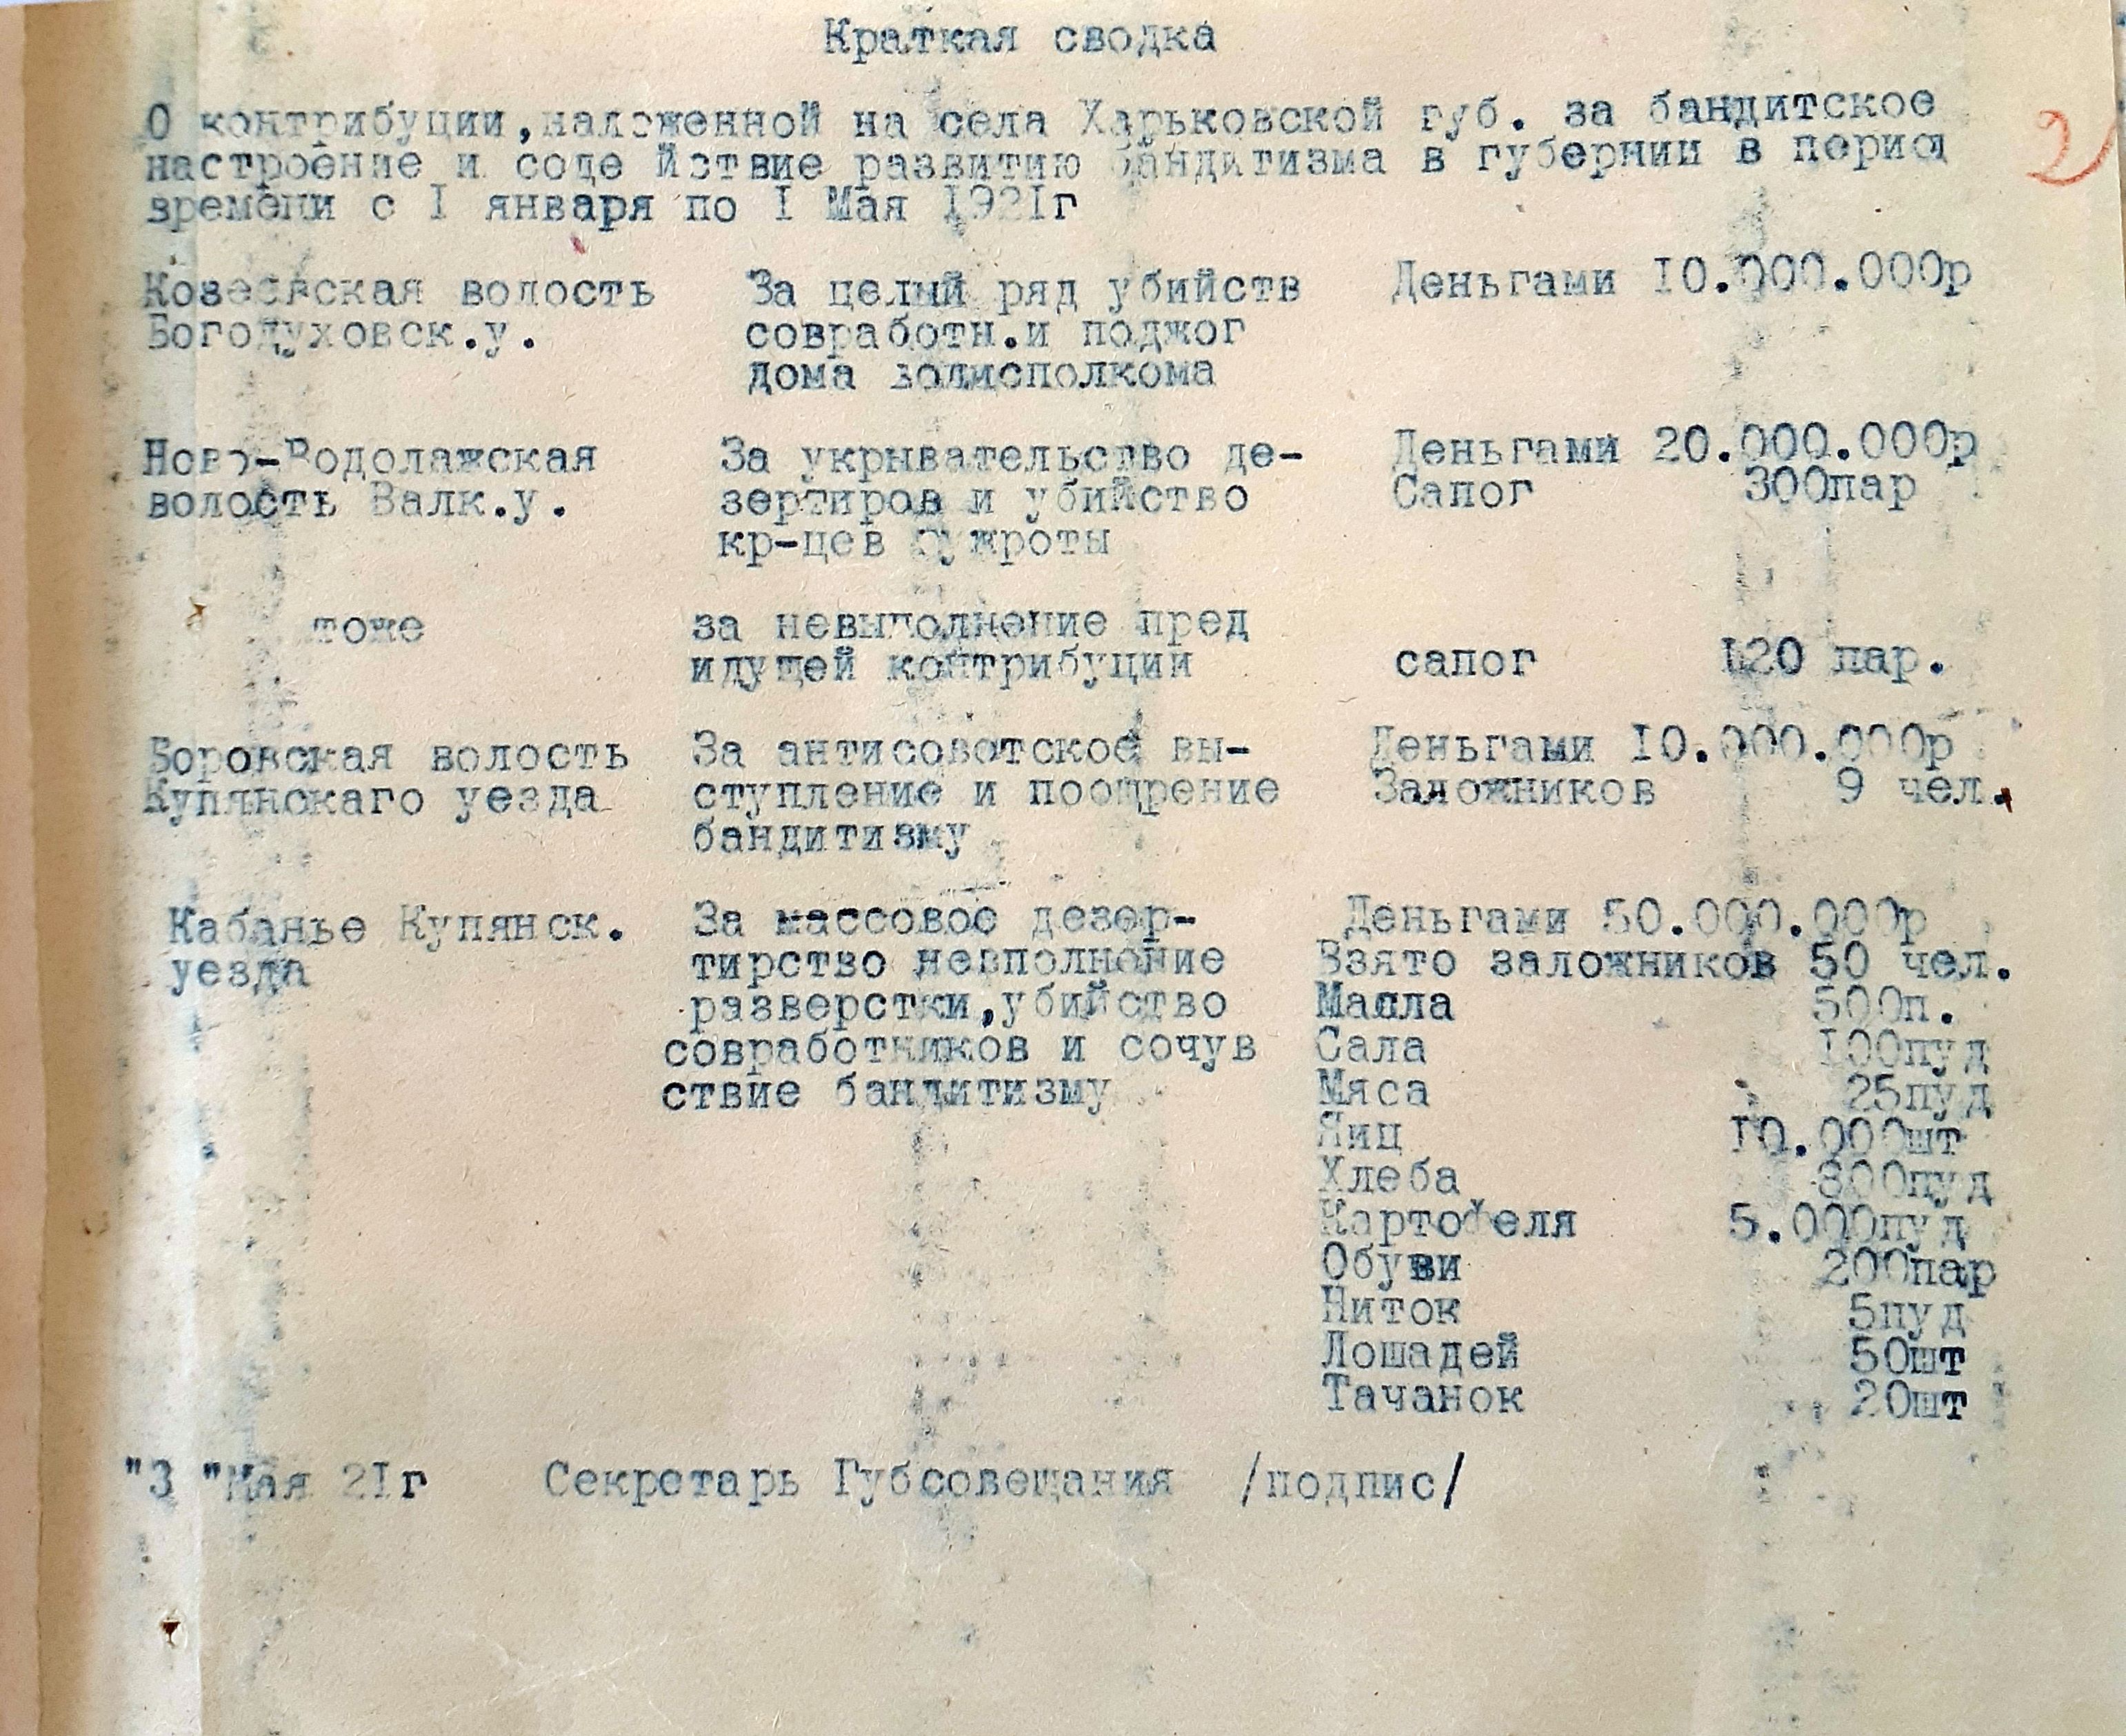 Краткая сводка
2
О контрибуции,наложенной на села Харьковской губ. за бандитское
настроение и соде йствие развитию бандитизма в губернии в период
времени с I января по I Мая 1921г
Козеевская волость За целый ряд убийств Деньгами IO.000.000р
Богодуховск.у. совработн.и поджог
дома волисполкома
Ново-Водолажская За укрывательство де- Деньгами 20.000.000р
волость Валк.у. зертиров и убийство Сапог 300пар
кр-цев
тоже за невыполнение пред
идущей контрибуции сапог 120 пар.
Боровская волость За антисоветское вы- Деньгами IO.000.000р
Купянскаго уезда ступление и поощрение Заложников 9 чел.
бандитизму
Кабанье Купянск. За массовое дезер- Деньгами 50.000.000р
уезда тирство невполнение Взято заложников 50 чел.
разверстки,убийство Масла 500п.
совработников и сочув Сала I00пуд
ствие бандитизму Мяса 25пуд
Яиц I0.000шт
Хлеба 800пуд
Картофеля 5.000пуд
Обуви 200пар
Ниток 5пуд
Лошадей 50шт
Тачанок 20шт
"3 "Мая 2Iг Секретарь Губсовещания /подпис/